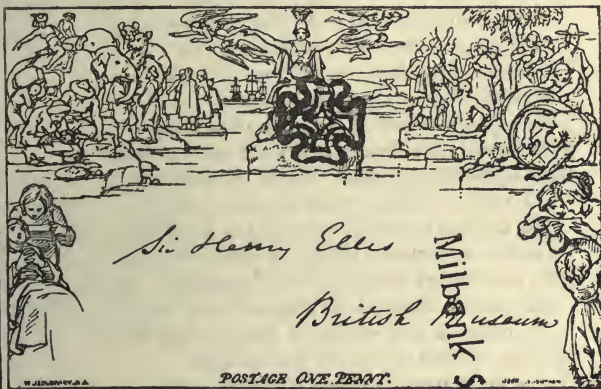 Sir Henry Ellis
British Museum
Milbank S
POSTAGE ONE PENNY.